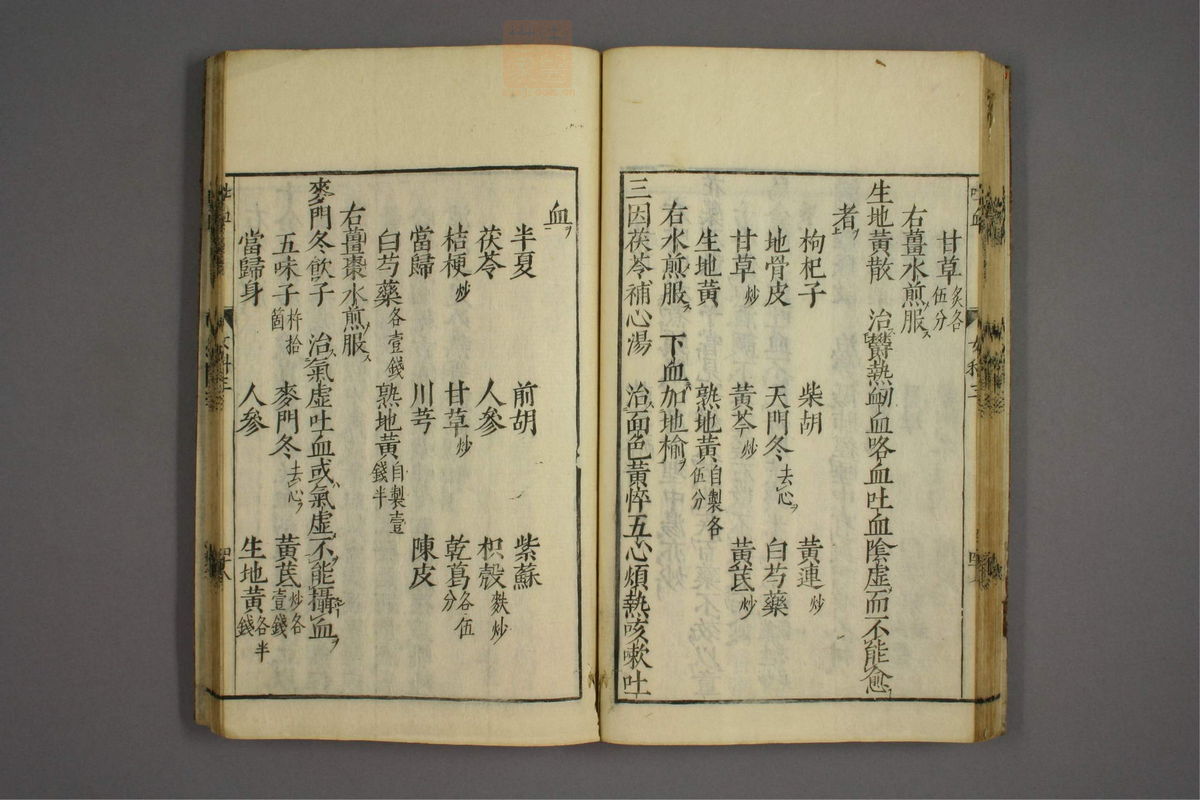 甘草炙各伍分
右薑水煎服ス
生地黃散　治欝熱衂血咯血吐血陰虛而不能愈
者ヲ
枸杞子　柴胡　黃連炒
地骨皮　天門冬去心ヲ　白芍藥
甘草炒　黃芩炒　黃芪炒
生地黃　熟地黃自製各伍分
右水煎服ス　下血加地榆ヲ
三因茯苓補心湯　治面色黃悴五心煩熱咳嗽吐
血ヲ
半夏　前胡　紫蘇
茯苓　人參　枳殼麩炒
桔梗炒　甘草炒　乾葛各伍分
當歸　川芎　陳皮
白芍藥各壹錢　熟地黃自製壹錢半
右薑棗水煎服ス
麥門冬飲子　治氣虛吐血或氣虛不能攝血ヲ
五味子杵拾箇　麥門冬去心ヲ　黃芪炒各壹錢
當歸身　人參　生地黃各半錢
吐血
女科三
四八